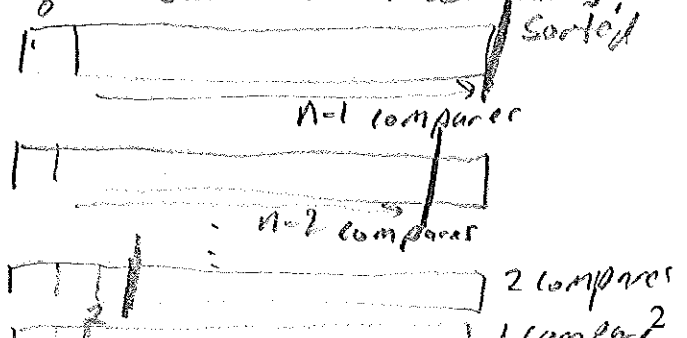 0
sorted
n-1 compares
n-2 compares
2 compares
2
1 compare
2